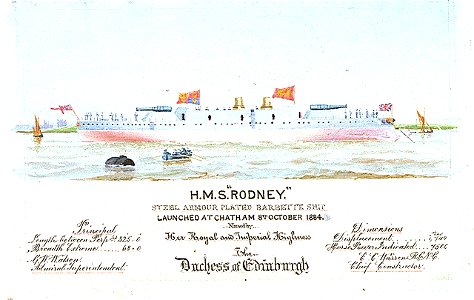 H.M.S. "RODNEY."
STEEL ARMOUR PLATED BARBETTE SHIP
LAUNCHED AT CHATHAM 8TH OCTOBER 1884.
Named by
Her Royal and Imperial Highness
The
Duchess of Edinburgh
Principal
Dimensions
Length between Perps 325.0
Breadth Extreme 68.0
G. W. Watson.
Admiral Superintendent.
Displacement
Horse Power Indicated 7500
E. C. Warren R.C.N.C.
Chief Constructor.